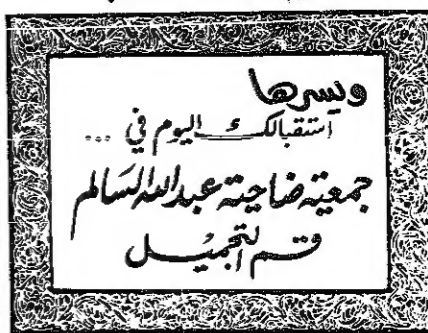 ويسرها
استقبالك اليوم في ...
جمعية ضاحية عبدالله السالم
قسم التجميل